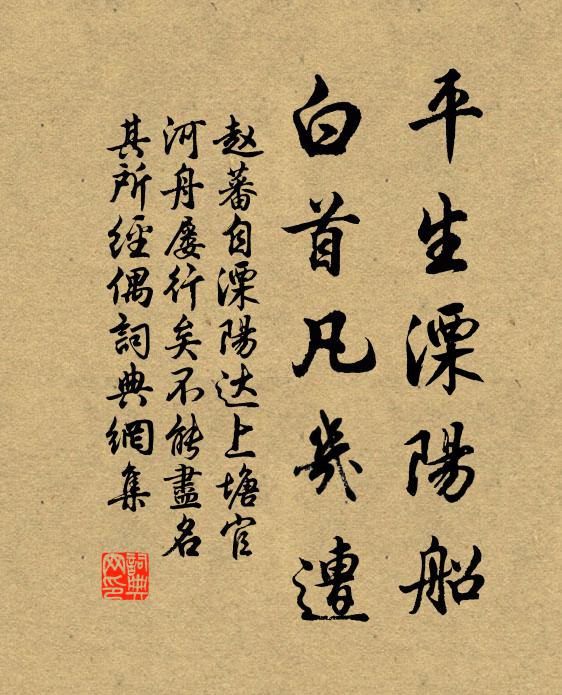 平生溧陽船
白首凡幾遭
赵蕃自溧陽达上塘官
河舟屡行矣不能盡名
其所經偶詞典網集
詞典
网印